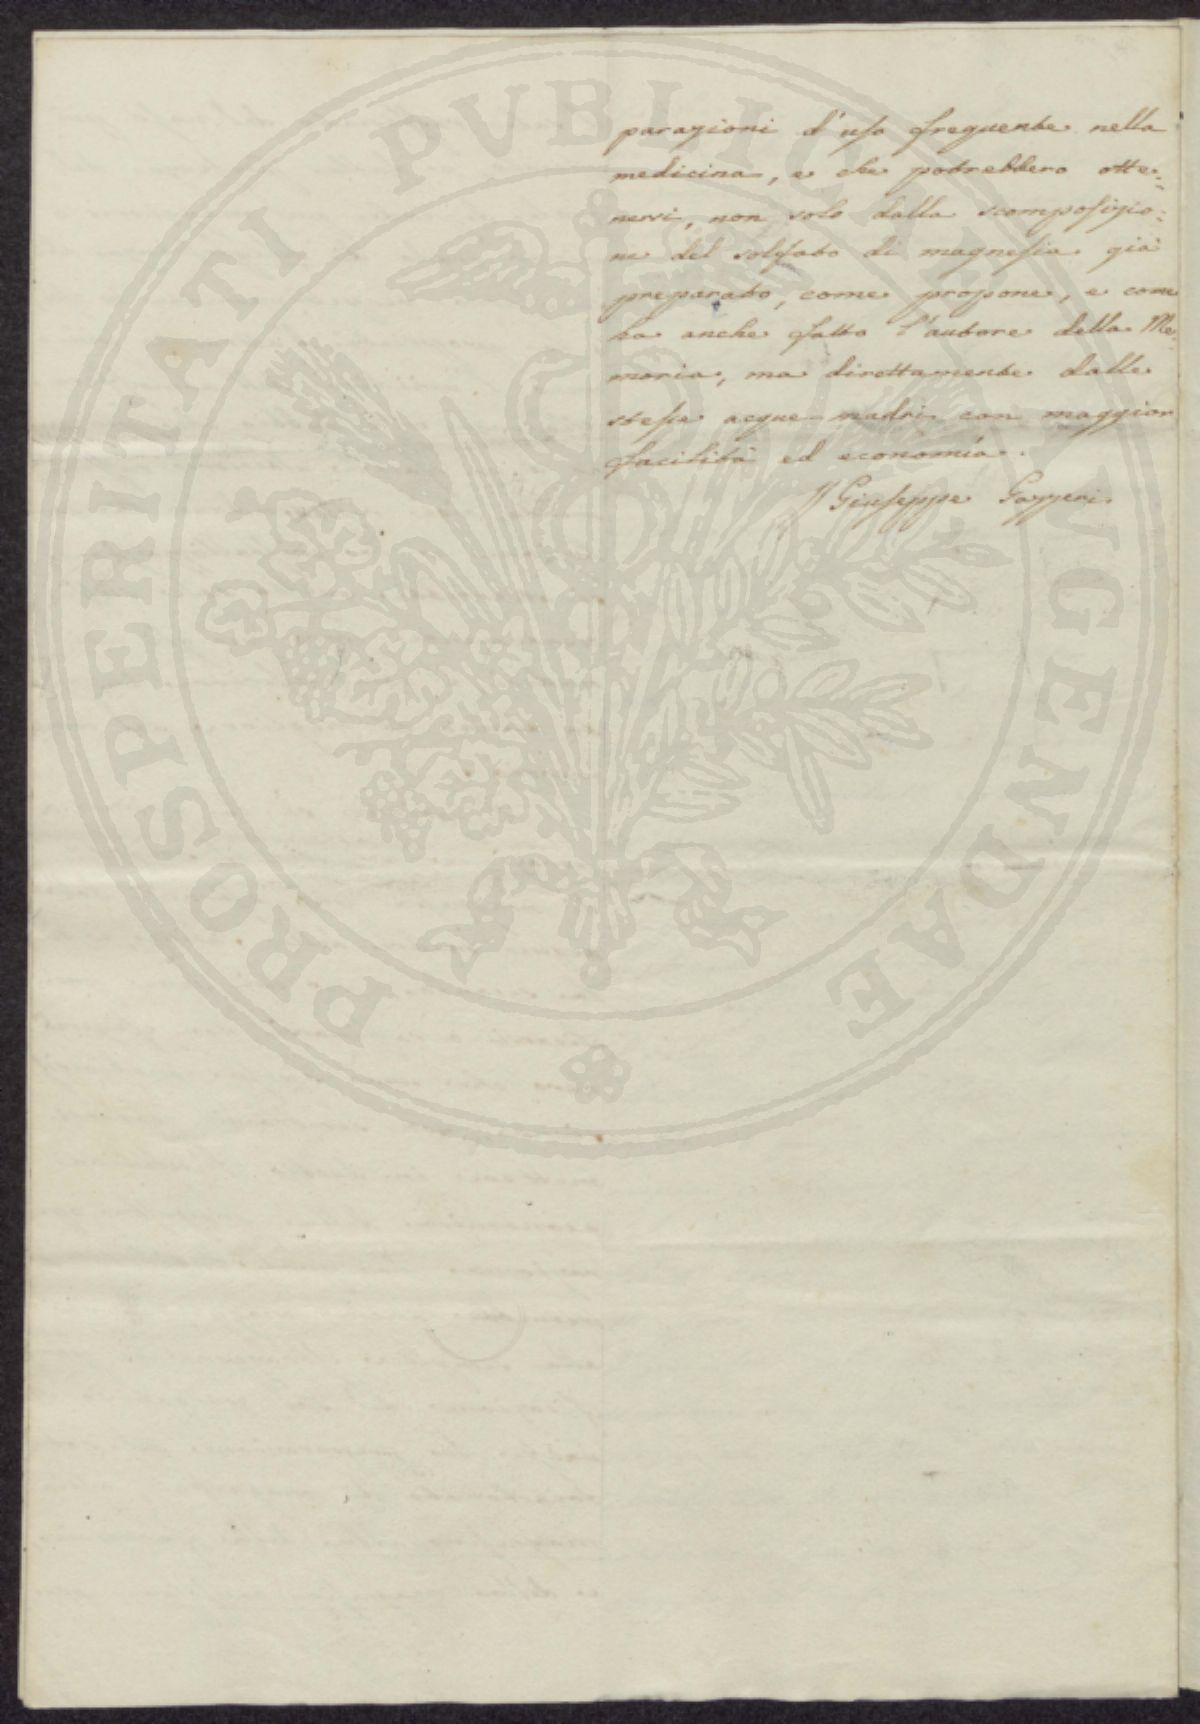 parazioni d'uso frequente nella
medicina, e che potrebbero otte=
nersi, non solo dalla scomposizio=
ne del solfato di magnesia già
preparato, come propone, e come
ha anche fatto l'autore della Me=
moria, ma direttamente dalle
stesse acque madri con maggior
facilità ed economía.
Giuseppe Gazzeri
PROSPERITATI PVBLICAE AVGENDAE